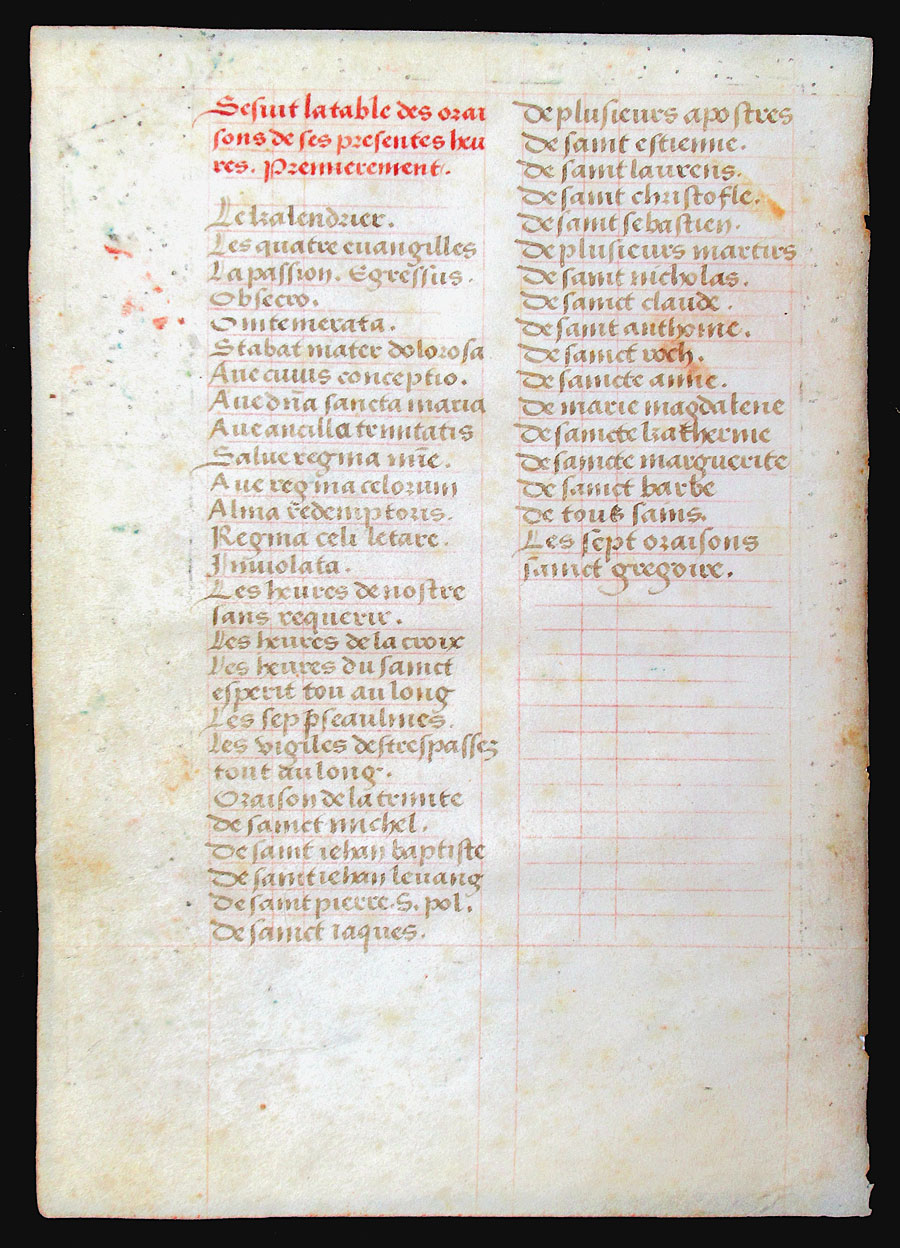 Sesuit la table des orai
sons de ses presentes heu
res. Premierement.
Le kalendrier.
Les quatre euangilles
La passion. Egressus.
Obsecro.
O intemerata.
Stabat mater dolorosa
Aue cuius conceptio.
Aue dña sancta maria
Aue ancilla trinitatis
Salue regina mĩe.
Aue regina celorum
Alma redemptoris.
Regina celi letare.
Inuiolata.
Les heures de nostre
sans requerir.
Les heures de la croix
Les heures du sainct
esperit tou au long
Les sep pseaulmes.
Les vigiles des trespassez
tout au long.
Oraison de la trinite
De sainct michel.
De saint iehan baptiste
De saint iehan leuang
De saint pierre. S. pol.
De sainct iaques.
De plusieurs apostres
De saint estienne.
De saint laurens.
De saint christofle.
De saint sebastien.
De plusieurs martirs
De saint nicholas.
De sainct claude.
De saint anthoine.
De sainct roch.
De saincte anne.
De marie magdalene
De saincte katherine
De saincte marguerite
De sainct barbe
De tous sains.
Les sept oraisons
sainct gregoire.